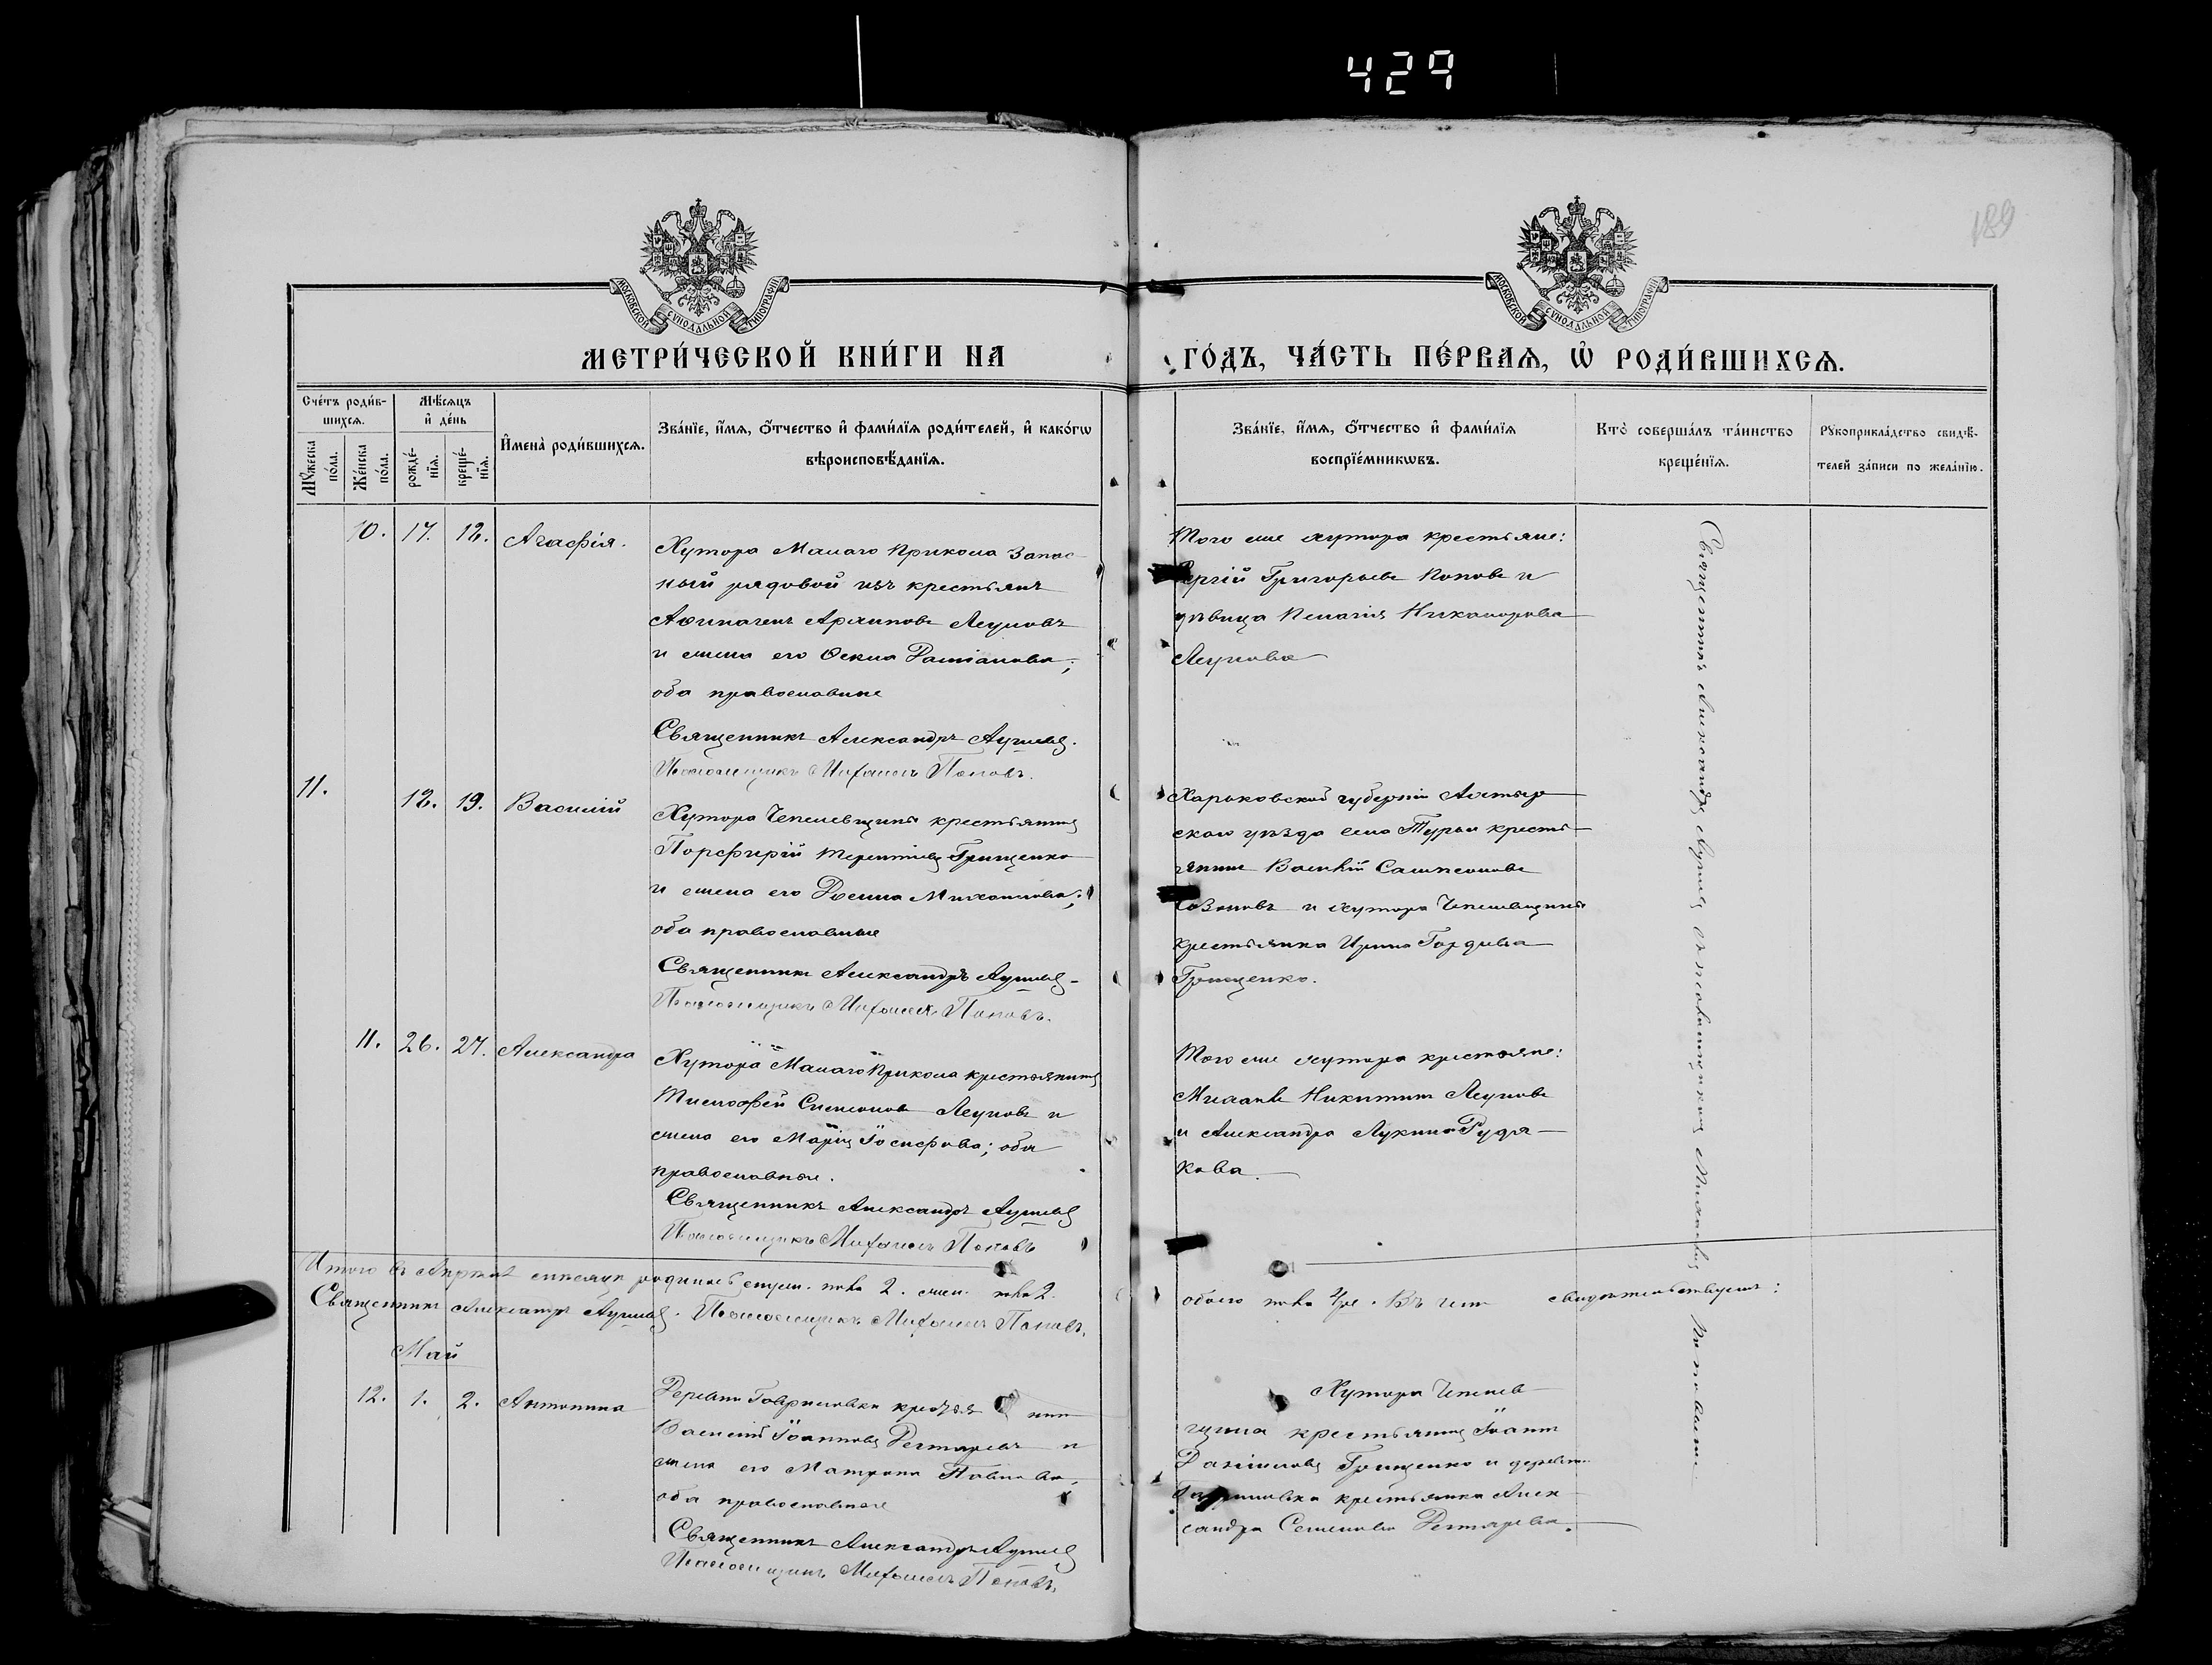 429
189
МОСКОВСКОЙ СѴНОДАЛЬНОЙ ТИПОГРАФІИ
МОСКОВСКОЙ СѴНОДАЛЬНОЙ ТИПОГРАФІИ
МЕТРИ́ЧЕСКОЙ КНИ́ГИ НА
ГО́ДЪ, ЧА́СТЬ ПЕ́РВАѦ, Ѽ РОДИ́ВШИХСѦ.
Сче́тъ роди́в-
шихсѧ.
Мꙋ́жеска по́ла.
Же́нска по́ла.
Мѣ́сѧцъ и҆ де́нь
рожде́-
нїѧ.
креще́-
нїѧ.
И҆мена̀ роди́вшихсѧ.
Зва́нїе, и҆́мѧ, ѻ҆́тчество и҆ фами́лїѧ роди́телей, и҆ како́гѡ
вѣроисповѣ́данїѧ.
Зва́нїе, и҆́мѧ, ѻ҆́тчество и҆ фами́лїѧ
воспрїе́мникѡвъ.
Кто̀ соверша́лъ та́инство
креще́нїѧ.
Рꙋкоприкла́дство свидѣ́-
телей за́писи по жела́нїю.
10. 17. 18. Агафія.
Хутора Малаго Прикола запас
ный рядовой изъ крестьянъ
Архиповъ Леуновъ
и жена его Даміанова;
оба православные
Священникъ Александръ
Псаломщикъ Михаилъ Поповъ.
Того же хутора крестьяне:
Сергій Григорьевъ Поповъ и
дѣвица Пелагія Никанорова
Леунова
11. 18. 19. Василій
Хутора Чепелевщины крестьянинъ
Порфирій Терентіевъ Грищенко
и жена его Михаилова;
оба православные
Священникъ Александръ
Псаломщикъ Михаилъ Поповъ.
Харьковской губерніи Ахтыр
скаго уѣзда села Турьи кресть-
янинъ Василій Сампсоновъ
и хутора Чепелевщины
крестьянка Ирина Гордіева
Грищенко.
11. 26. 27. Александра
Хутора Малаго Прикола крестьянинъ
Тимофей Леуновъ и
жена его Марія Іосифова; оба
православные.
Священникъ Александръ
Псаломщикъ Михаилъ Поповъ
Того же хутора крестьяне:
Михаилъ Никитинъ Леуновъ
и Александра Лукина Рудя-
кова.
Итого въ Апрѣлѣ мѣсяцѣ родилось муж. пола 2. жен. пола 2.
обоего пола 4ре. Въ чемъ свидѣтельствуемъ:
Священникъ Александръ Псаломщикъ Михаилъ Поповъ.
Май
12. 1. 2. Антонина
Деревни Гавриловки нинъ
Василій Іоанновъ Дегтяревъ и
жена его Матрона Павлова;
оба православные
Священникъ Александръ
Псаломщикъ Михаилъ Поповъ.
Хутора Чепелев
щина крестьянинъ Іоаннъ
Даніиловъ Грищенко и деревни
Гавриловки крестьянка Алек
сандра Семенова Дегтярева.
Священникъ Александръ съ псаломщикомъ Михаиломъ Поповымъ.